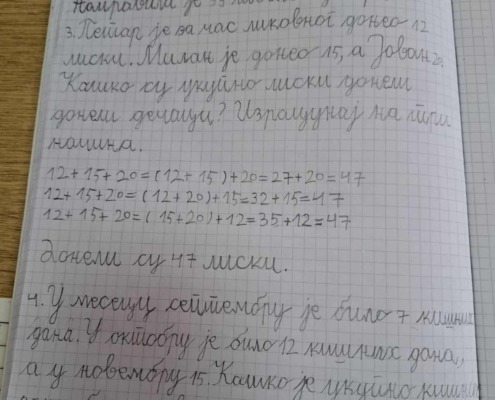 3. Петар је за час ликовног донео 12
лиски. Милан је донео 15, а Јован 20.
Колико су укупно лиски донели
донели дечаци? Израчунај на три
начина.
12+15+20=(12+15)+20=27+20=47
12+15+20=(12+20)+15=32+15=47
12+15+20=(15+20)+12=35+12=47
Донели су 47 лиски.
4. У месецу септембру је било 7 кишних
дана. У октобру је било 12 кишних дана,
а у новембру 15. Колико је укупно кишних